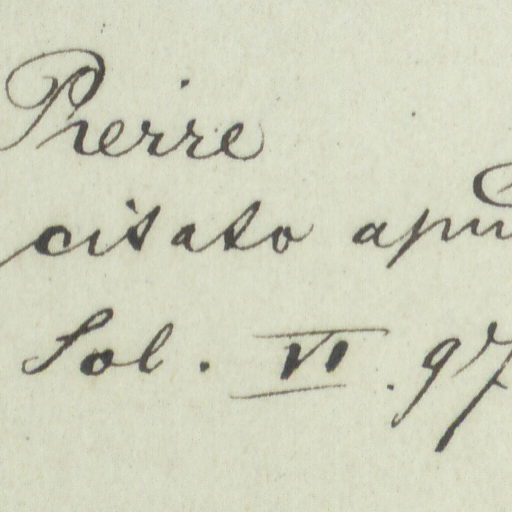 Pierre
citato apu
Sol. VI. 97